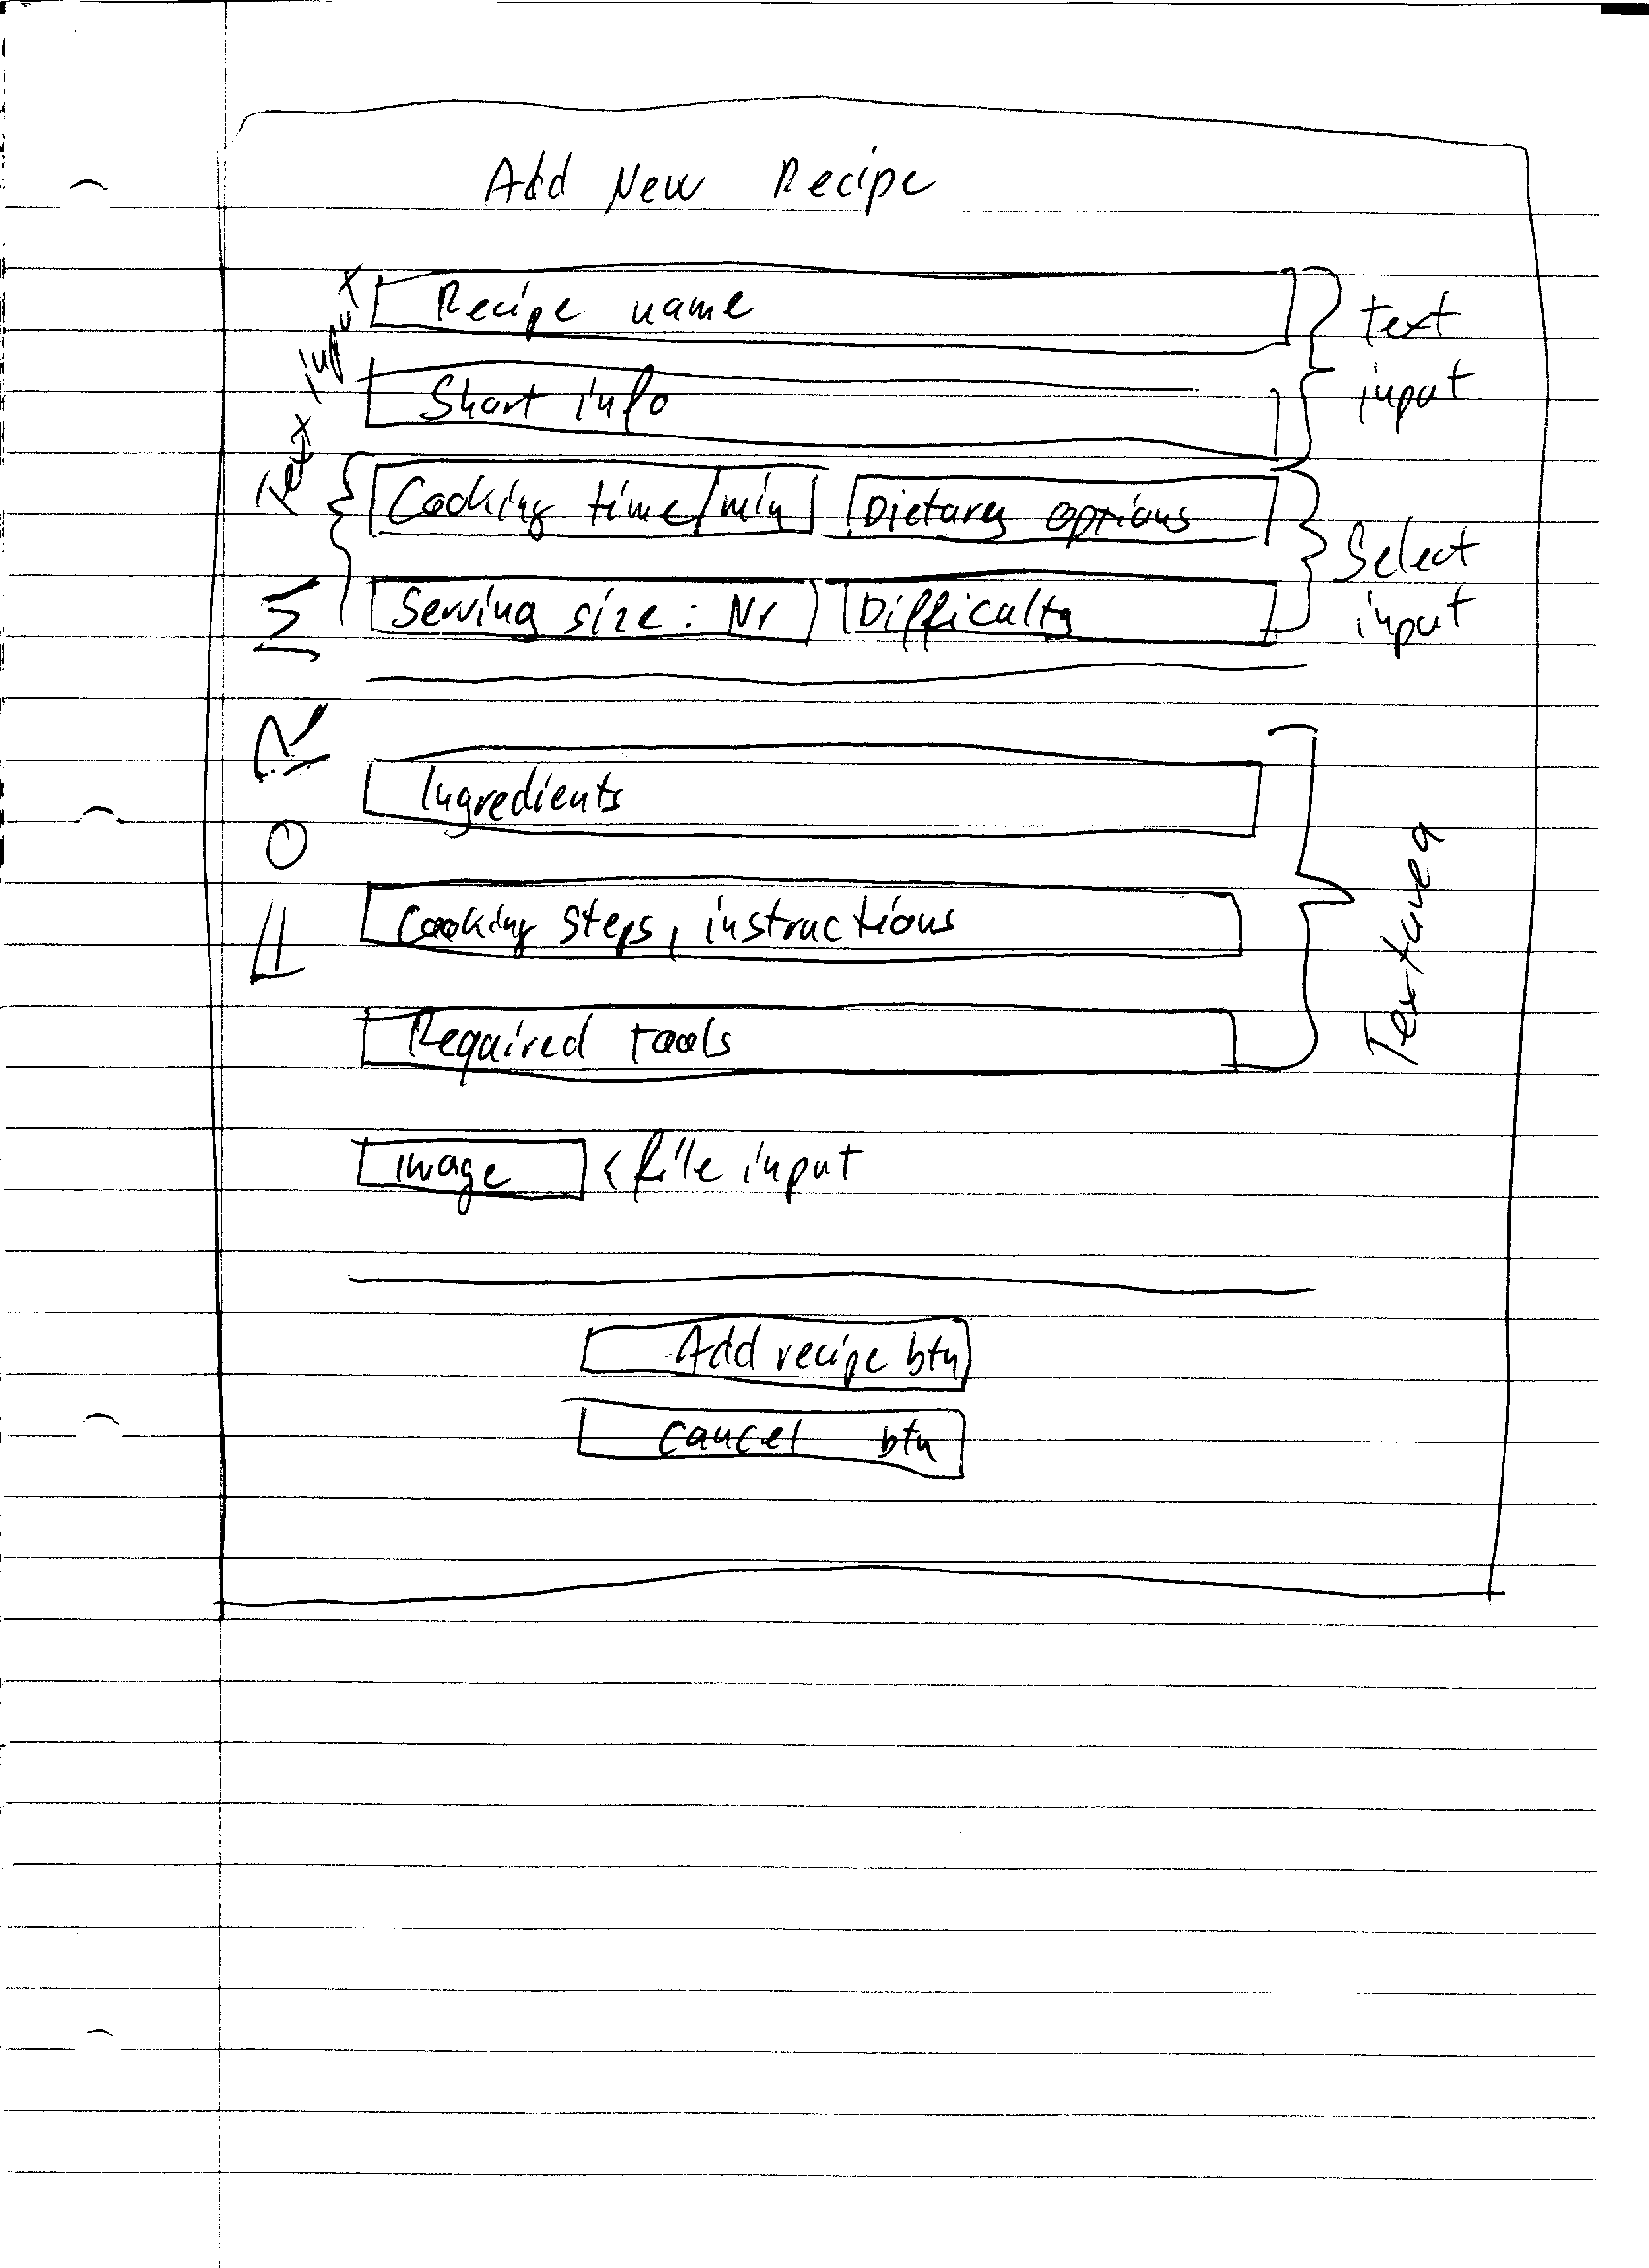 Add New Recipe
Recipe name
Short info
text input
text input
Cooking time/min
Dietary options
Serving size: Nr
Difficulty
Select input
FORM
Ingredients
Cooking steps, instructions
Required tools
Textarea
image
< file input
Add recipe btn
cancel btn